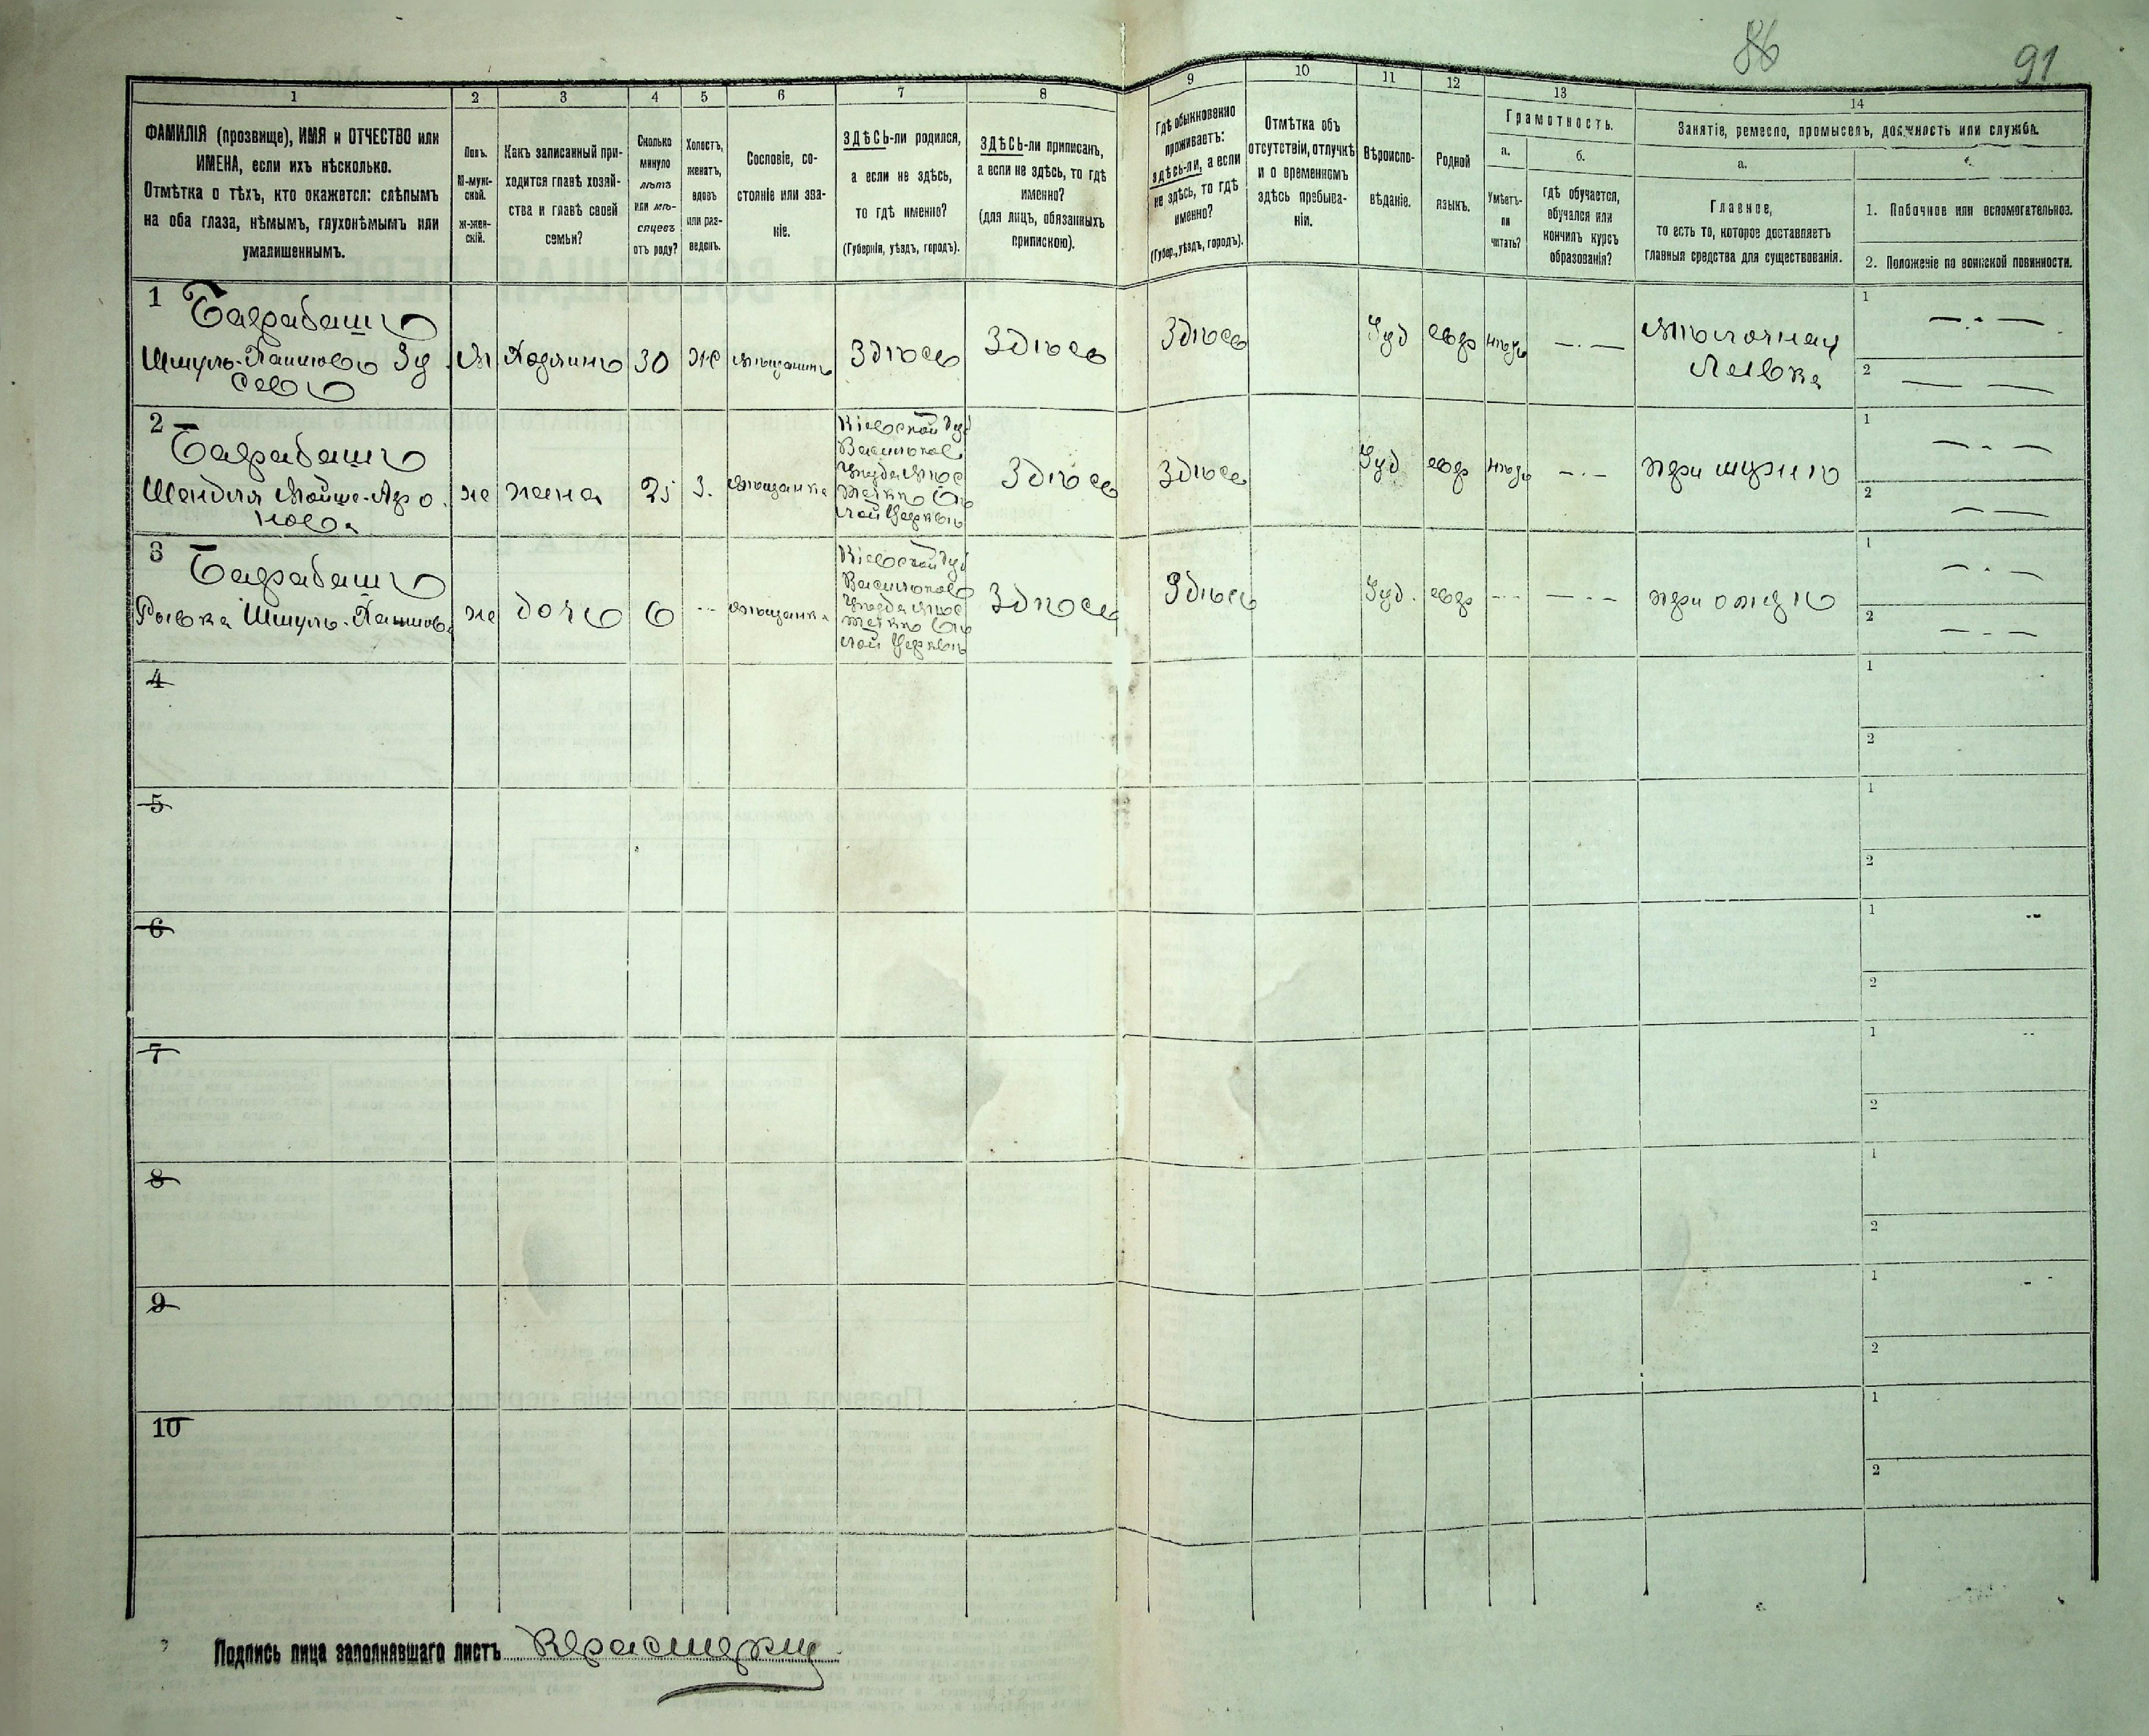 86
91
1
2
3
4
5
6
7
8
9
10
11
12
13
14
ФАМИЛІЯ (прозвище), ИМЯ и ОТЧЕСТВО или
ИМЕНА, если ихъ нѣсколько.
Отмѣтка о тѣхъ, кто окажется: слѣпымъ
на оба глаза, нѣмымъ, глухонѣмымъ или
умалишеннымъ.
Полъ.
М-муж-
ской.
ж-жен-
скій.
Какъ записанный при-
ходится главѣ хозяй-
ства и главѣ своей
семьи?
Сколько
минуло
лѣтъ
или мѣ-
сяцевъ
отъ роду?
Холостъ,
женатъ,
вдовъ
или раз-
веденъ.
Сословіе, со-
стояніе или зва-
ніе.
ЗДѢСЬ-ли родился,
а если не здѣсь,
то гдѣ именно?
(Губернія, уѣздъ, городъ).
ЗДѢСЬ-ли приписанъ,
а если не здѣсь, то гдѣ
именно?
(для лицъ, обязанныхъ
припискою).
Гдѣ обыкновенно
проживаетъ:
здѣсь-ли, а если
не здѣсь, то гдѣ
именно?
(Губер., уѣздъ, городъ).
Отмѣтка объ
отсутствіи, отлучкѣ
и о временномъ
здѣсь пребыва-
ніи.
Вѣроиспо-
вѣданіе.
Родной
языкъ.
Грамотность.
а.
Умѣетъ-
ли
читать?
б.
гдѣ обучается,
обучался или
кончилъ курсъ
образованія?
Занятіе, ремесло, промыселъ, должность или служба.
а.
Главное,
то есть то, которое доставляетъ
главныя средства для существованія.
1. Побочное или вспомогательное.
2. Положеніе по воинской повинности.
1
Барабашъ
Шмуль-
М
Хозяинъ
30
Ж
мѣщанинъ
Здѣсь
Здѣсь
Здѣсь
Іуд
евр
— . —
лавка
1
— . —
2
— —
2
Барабашъ
Мойше-Аро
нова
ж
жена
25
З.
мѣщанка
Кіевской Губ
Васильков
Уѣзда Мѣс
течко Бѣ
лой Церквѣ
Здѣсь
Здѣсь
Іуд
евр
— . —
при мужѣ
1
— . —
2
— —
3
Барабашъ
Рывка Шмуль-
ж
дочь
6
- -
мѣщанка
Кіевской Губ
Васильков
Уѣзда Мѣс
течко Бѣ
лой Церквѣ
Здѣсь
Здѣсь
Іуд.
евр
- - -
— . —
при отцѣ
1
— . —
2
— . —
4
1
2
5
1
2
6
1
2
7
1
2
8
1
2
9
1
2
10
1
2
Подпись лица заполнявшаго листъ